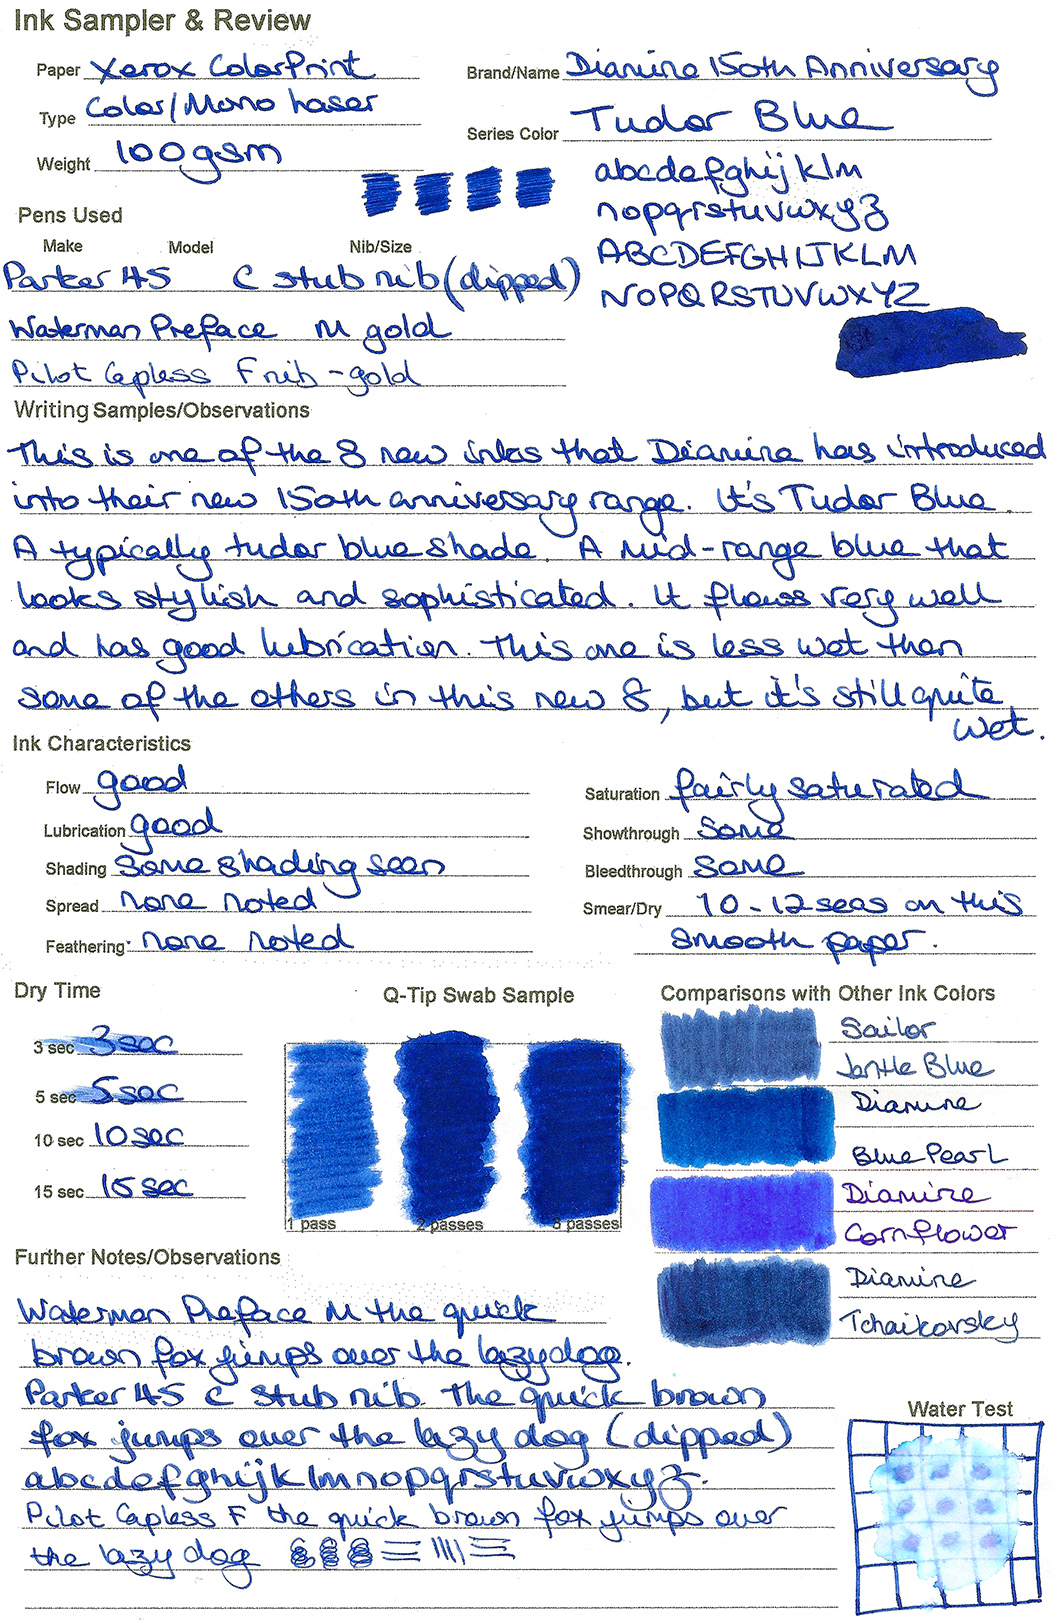 Ink Sampler & Review
Paper Xerox ColorPrint
Type Color/Mono Laser
Weight 100gsm
Brand/Name Diamine 150th Anniversary
Series Color Tudor Blue
abcdefghijklm
nopqrstuvwxyz
ABCDEFGHIJKLM
NOPQRSTUVWXYZ
Pens Used
Make Model Nib/Size
Parker 45 C stub nib (dipped)
Waterman Preface M gold
Pilot Capless F nib - gold
Writing Samples/Observations
This is one of the 8 new inks that Diamine has introduced
into their new 150th anniversary range. It's Tudor Blue.
A typically tudor blue shade. A mid-range blue that
looks stylish and sophisticated. It flows very well
and has good lubrication. This one is less wet than
some of the others in this new 8, but it's still quite
wet.
Ink Characteristics
Flow good
Lubrication good
Shading some shading seen
Spread none noted
Feathering none noted
Saturation fairly saturated
Showthrough some
Bleedthrough some
Smear/Dry 10-12 secs on this
smooth paper.
Dry Time
3 sec 3sec
5 sec 5sec
10 sec 10sec
15 sec 15sec
Q-Tip Swab Sample
1 pass 2 passes 3 passes
Comparisons with Other Ink Colors
Sailor
Jentle Blue
Diamine
Blue Pearl
Diamine
Cornflower
Diamine
Tchaikovsky
Further Notes/Observations
Waterman Preface M the quick
brown fox jumps over the lazy dog.
Parker 45 C stub nib. The quick brown
fox jumps over the lazy dog (dipped)
abcdefghijklmnopqrstuvwxyz.
Pilot Capless F the quick brown fox jumps over
the lazy dog
Water Test